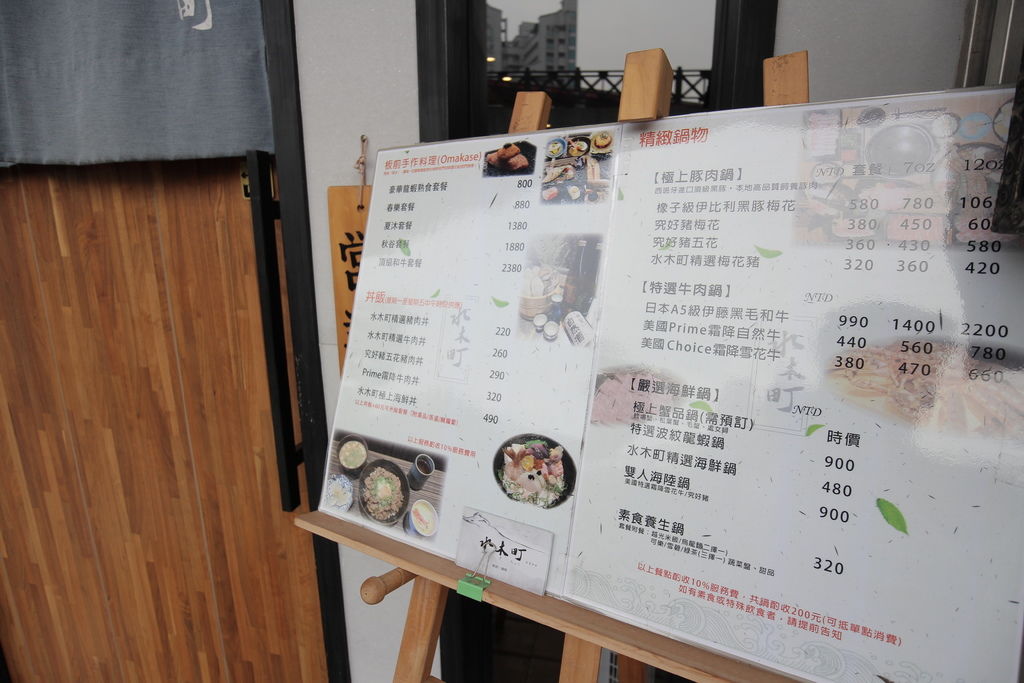 町
營
板前手作料理(Omakase)
豪華龍蝦熟食套餐 800
春樂套餐 880
夏沐套餐 1380
秋谷套餐 1880
頂級和牛套餐 2380
丼飯
水木町精選豬肉丼 220
水木町精選牛肉丼 260
究好豬五花豬肉丼 290
Prime霜降牛肉丼 320
水木町極上海鮮丼 490
以上餐點酌收10%服務費用
水木町
水木町
精緻鍋物
【極上豚肉鍋】 NTD 套餐 7OZ 12OZ
西班牙進口頂級黑豚，本地高品質飼養豚肉
橡子級伊比利黑豚梅花 580 780 1060
究好豬梅花 380 450 60
究好豬五花 360 430 580
水木町精選梅花豬 320 360 420
【特選牛肉鍋】 NTD
日本A5級伊藤黑毛和牛 990 1400 2200
美國Prime霜降自然牛 440 560 780
美國Choice霜降雪花牛 380 470 660
水木町
【嚴選海鮮鍋】 NTD
極上蟹品鍋(需預訂) 時價
特選波紋龍蝦鍋 900
水木町精選海鮮鍋 480
雙人海陸鍋 900
美國特選霜降雪花牛/究好豬
素食養生鍋 320
套餐附餐：越光米飯/烏龍麵(二擇一)
可樂/雪碧/綠茶(三擇一) 蔬菜盤、甜品
以上餐點酌收10%服務費，共鍋酌收200元(可抵單點消費)
如有素食或特殊飲食者，請提前告知